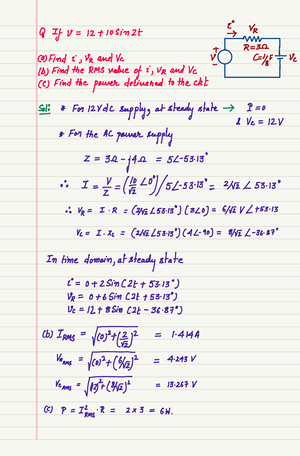 Q If V = 12 + 10 Sin 2t
(a) Find i, VR and Vc
(b) Find the RMS value of i, VR and Vc
(c) Find the power delivered to the ckt
i
VR
R = 3Ω
V
+
-
C = 1/8 F
Vc
Sol: * For 12V dc supply, at steady state → I = 0
& Vc = 12V
* For the AC power supply
Z = 3Ω - j4Ω = 5∠-53.13°
∴ I = V/Z = (10/√2 ∠0°)/5∠-53.13° = 2/√2 ∠53.13°
∴ VR = I · R = (2/√2 ∠53.13°)(3∠0) = 6/√2 V ∠+53.13
Vc = I · Xc = (2/√2 ∠53.13°)(4∠-90) = 8/√2 ∠-36.87°
In time domain, at steady state
i = 0 + 2 Sin (2t + 53.13°)
VR = 0 + 6 Sin (2t + 53.13°)
Vc = 12 + 8 Sin (2t - 36.87°)
(b) IRMS = √(0)² + (2/√2)² = 1.414A
VR RMS = √(0)² + (6/√2)² = 4.243 V
Vc RMS = √(12)² + (8/√2)² = 13.267 V
(c) P = I²RMS · R = 2 × 3 = 6W.